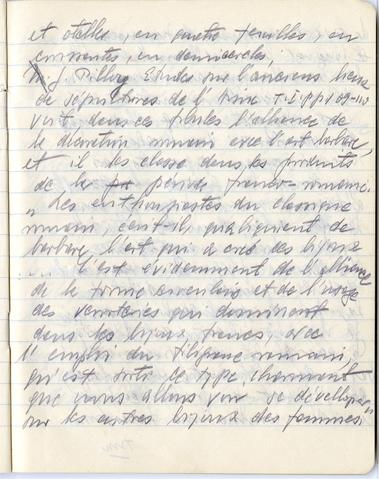 et étoilés, en quatre feuilles, en
croissantes, en demicercles,
M. J. Pilloy Etudes sur l'anciens lieux
de sépultures de l'Aisne T. I p.p.
voit dans ces fibules l'alliance de
la décoration romain avec l'art barbare,
et il les classe dans les produits
de la période franco-romaine.
" Les enthousiastes du classique
romain, écrit-il, qualifient de
barbare l'art qui a créé ces bijoux
.... C'est évidemment de l'alliance
de la forme circulaire et de l'usage
des verroteries qui dominent
dans les bijoux francs, avec
l'emploi du filigrane romain,
qu'est sorti ce type charmant
que nous allons voir se développer
sur les autres bijoux des femmes